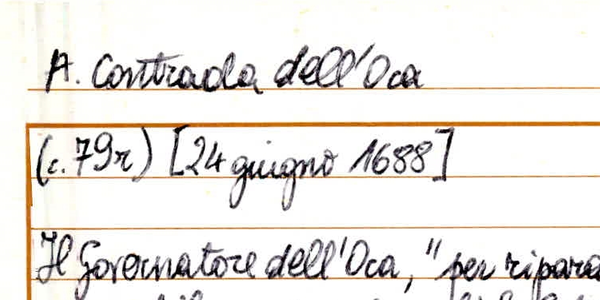 A. Contrada dell'Oca
(c.79r) [24 giugno 1688]
Il Governatore dell'Oca, "per ripara